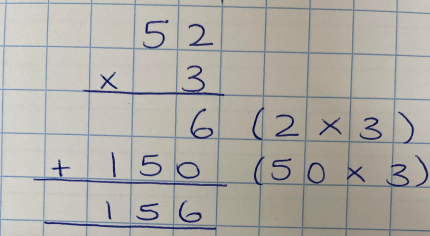 52
× 3
6 (2 × 3)
+ 150 (50 × 3)
156